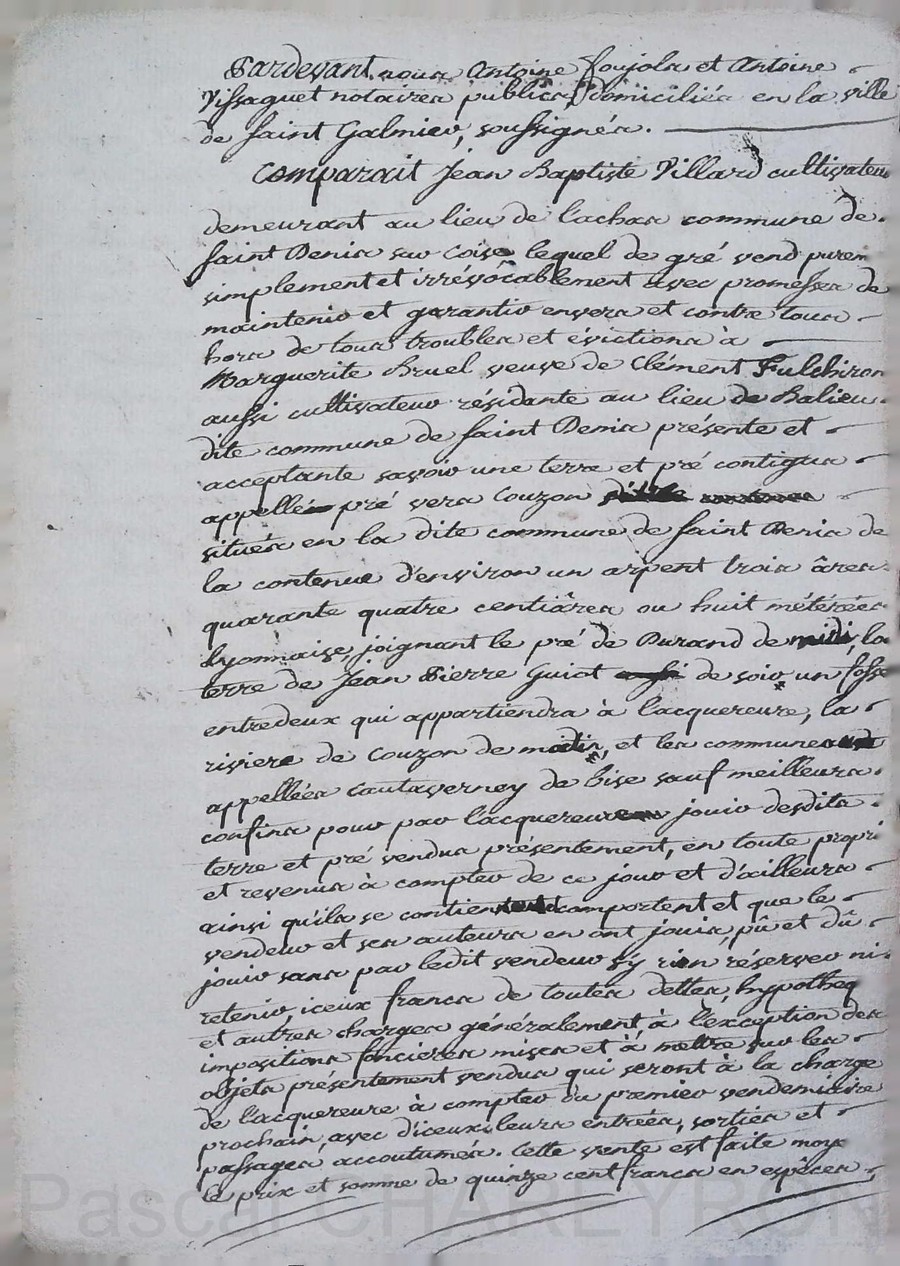 Pardevant nous Antoine Soujols et Antoine
Vissaguet notaires publics domiciliés en la ville
de Saint Galmier, soussignés.
Comparait Jean Baptiste Villard cultivateur
demeurant au lieu de lachas commune de
Saint Denis sur Coise lequel de gré vend purem
simplement et irrévocablement avec promesses de
maintenir et garantir envers et contre tous
hors de tous troubles et évictions à
Marguerite Bruel veuve de Clément Fulchiron
aussi cultivateur résidante au lieu de Balieu
dite commune de Saint Denis présente et
acceptante savoir une terre et pré contigus
appellés pré vers Couzon
situés en la dite commune de Saint Denis de
la contenue d'environ un arpent trois âres
quarante quatre centiâres ou huit métérées
Lyonnaise, joignant le pré de Durand de midi, la
terre de Jean Pierre Guiot de soir un fossé
entredeux qui appartiendra à lacquereure, la
riviere de Couzon de matin, et les communes
appellées Cantaverney de bise sauf meilleurs
confins pour par lacquereur jouir desdits
terre et pré vendus présentement, en toute propri
et revenus à compter de ce jour et d'ailleurs
ainsi qu'ils se contien comportent et que le
vendeur et ses auteurs en ont jouis, pû et dû
jouir sans par ledit vendeur s'y rien réserver ni
retenir, iceux francs de toutes dettes, hypotheq
et autres charges généralement, à l'exception des
impositions foncieres mises et à mettre sur les
objets présentement vendus qui seront à la charge
de l'acquereure à compter du premier vendemiaire
prochain, avec d'iceux leurs entrées, sorties et
passages accoutumés. Cette vente est faite moye
le prix et somme de quinze cent francs en espèces
Pascal CHAREYRON